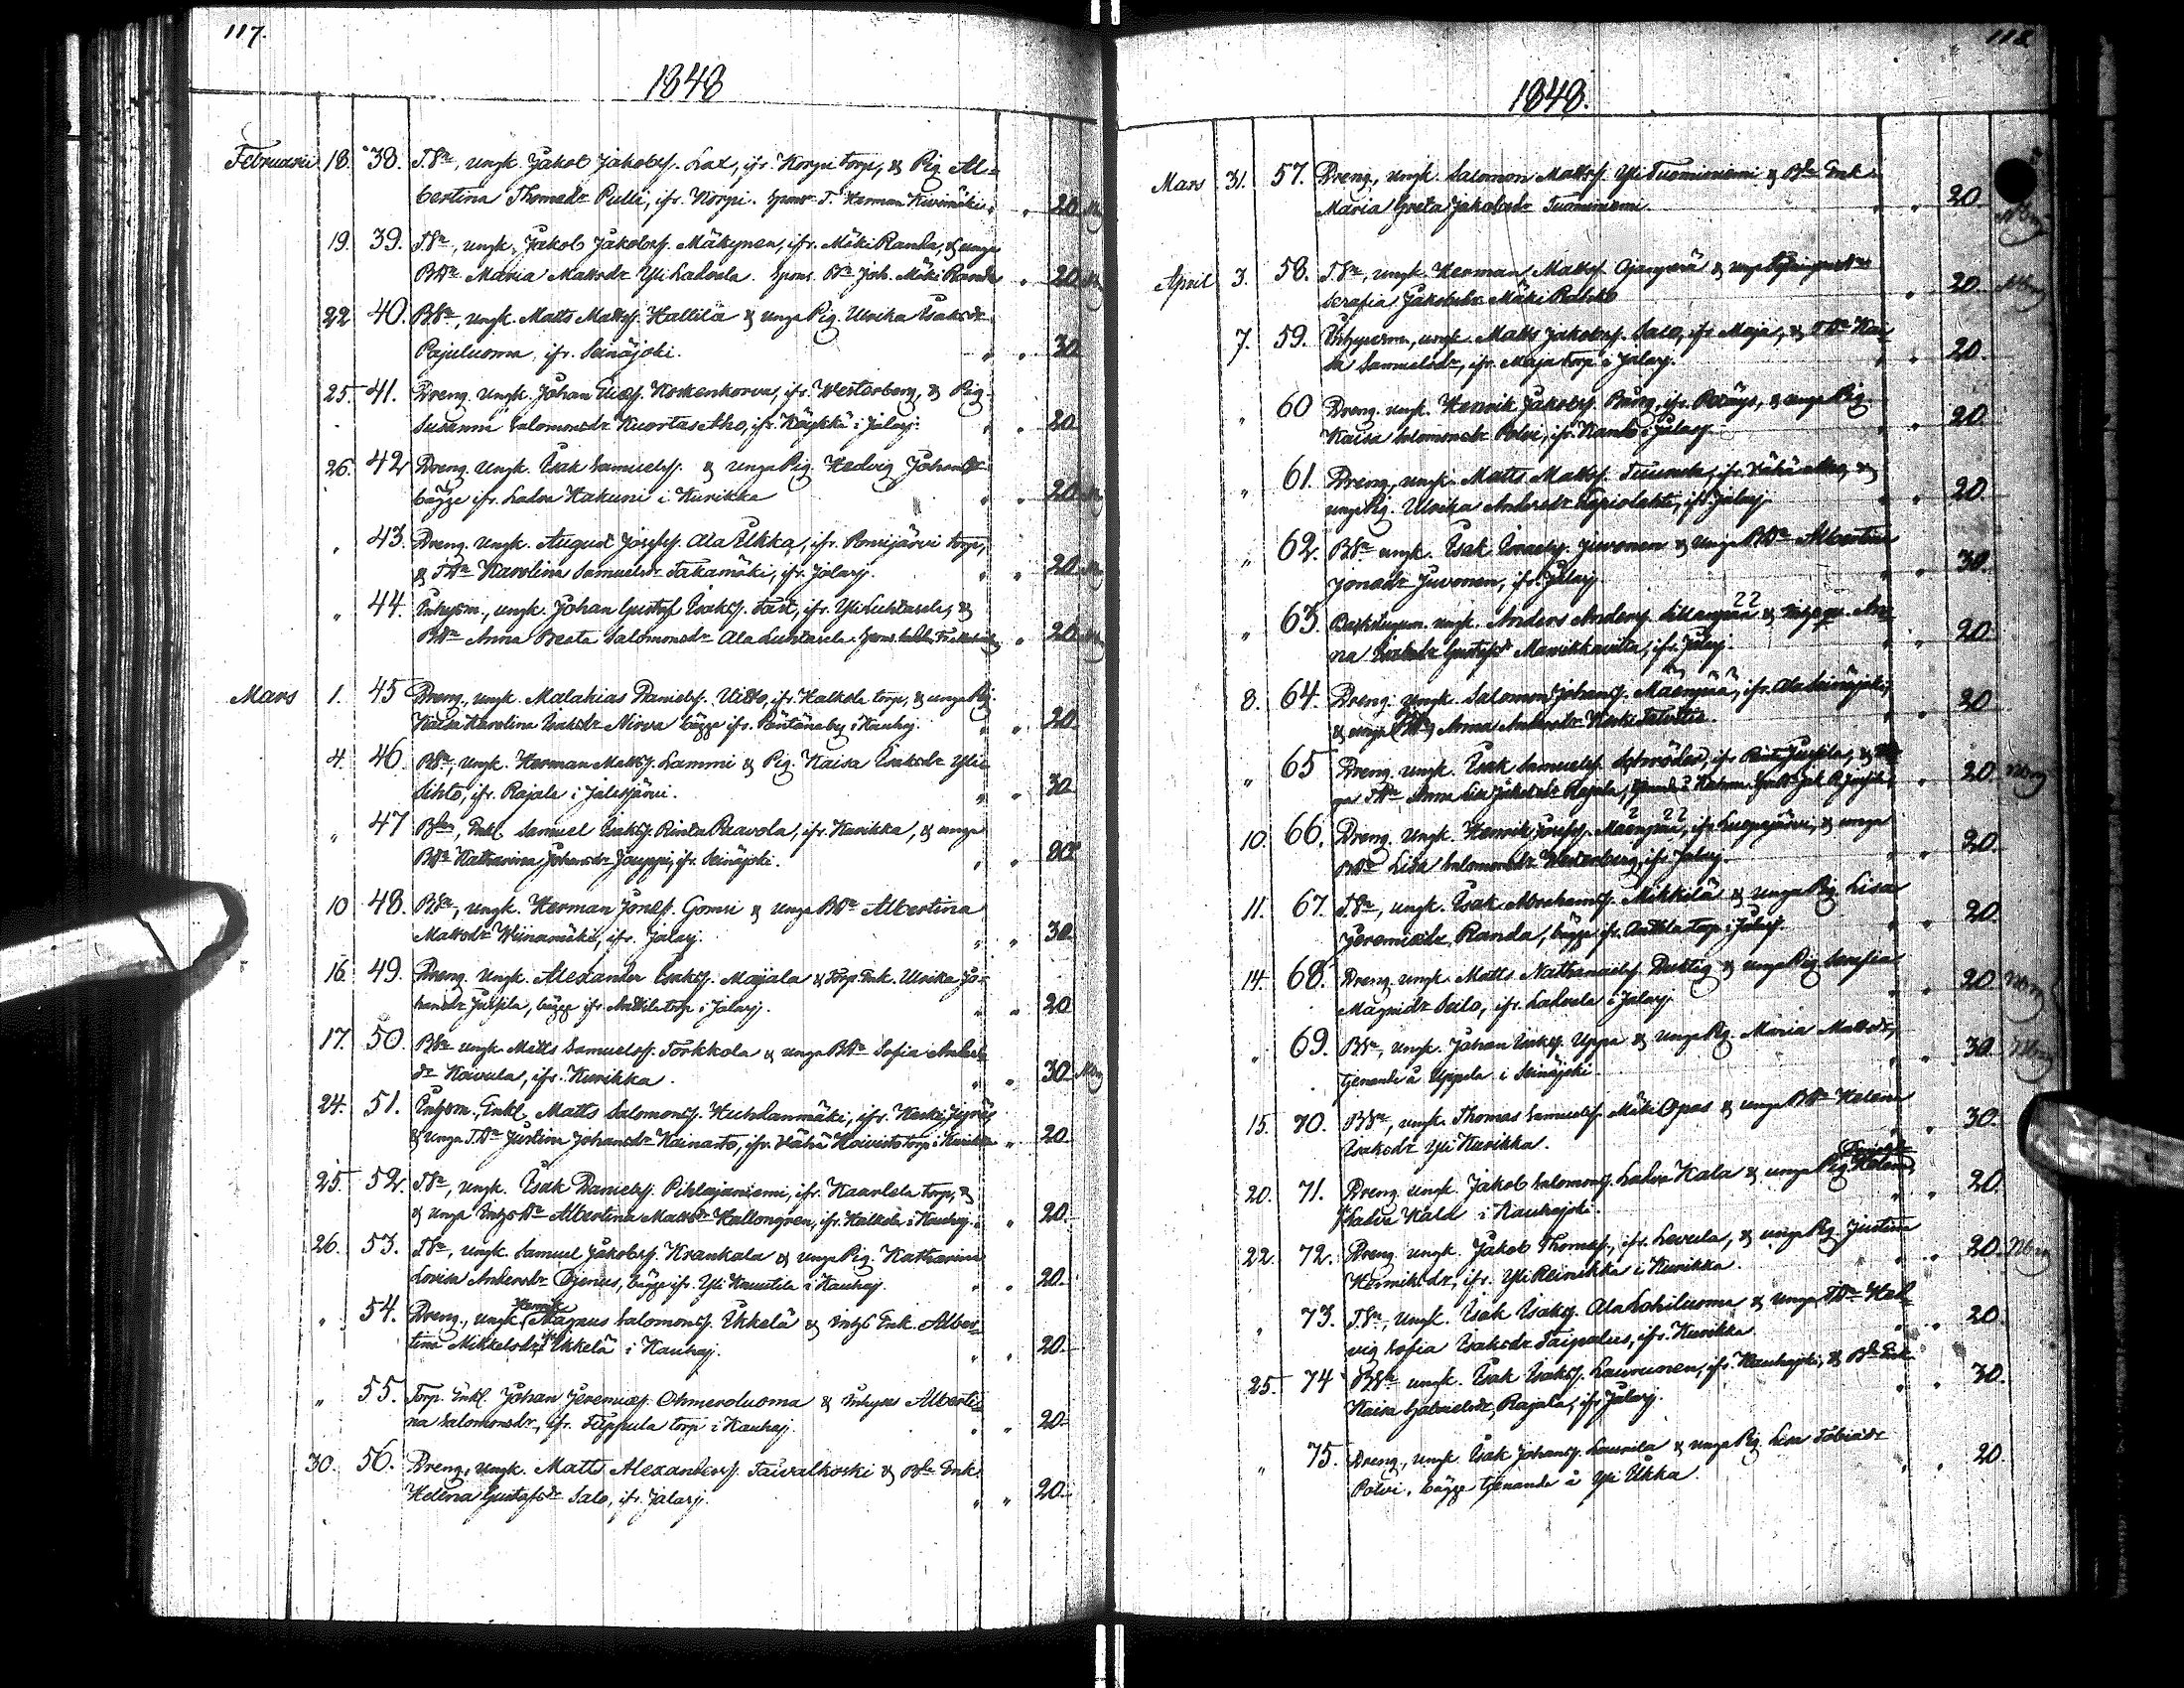 117.
1848
Februarii 18. 38. T.Sn, ungk. Jakob Jakobss. Lax, ifr. Korpi torp, & Pig. Al-
bertina Thomasdr Pulli, ifr. Korpi. Spons. T. Herman Kivimäki " " 20
19. 39. T.Sn, ungk. Jakob Jakobss. Mäkynen, ifr. Mäki Randa, & unga
BDr Maria Mattsdr Yli Ladvela. Spons. Joh. Mäki Randa " 20
22 40. B.Sn, ungk. Matts Mattss. Hallila & unga Pig. Ulrika Isaksdr
Pajuluoma, ifr. Seinäjoki. " " 30
25. 41. Dreng. ungk. Johan Eliess. Koskenkorva, ifr. Westerberg, & Pig.
Susanna Salomonsdr Kuortas Aho, ifr. Köykkä i Jalasj. " " 20
26. 42 Dreng. ungk. Isak Samuelss. & unga Pig. Hedvig Johansdr
bägge ifr. Ladva Hakuni i Kurikka " " 20
" 43. Dreng. Ungk. August Josefss. Ala Ukka, ifr. torp,
& TDr Karolina Samuelsdr Takamäki, ifr. Jalasj. " " 20
" 44. Inhysm., ungk. Johan Gustaf Isakss. Fast, ifr. Yli Luhtasela, &
BDr Anna Beata Salomonsdr Ala Luhtasela. Spons. " 20
Mars 1. 45 Dreng., ungk. Malakias Danielss. Uitto, ifr. Halkola torp, & unga Pig.
Kaisa Karolina Isaksdr Nirva bägge ifr. Päntäneby i Kauhaj. " " 20
4. 46. B.Sn, ungk. Herman Mattss. Lammi & Pig. Kaisa Isaksdr Yli-
Sihto, ifr. Rajala i Jalasjärvi. " " 30
" 47 Bden, Enkl. Samuel Isakss. Rinta Paavola, ifr. Kurikka, & unga
BDr Katharina Johansdr Jouppi, ifr. Seinäjoki. " "
10 48. B.Sn, ungk. Herman Jonass. Gomsi & unga BDr Albertina
Mattsdr Weinämäki, ifr. Jalasj. " " 30.
16 49. Dreng. Ungk. Alexander Isakss. Majala & Torp. Enk. Ulrika Jo-
hansdr Jussila, bägge ifr. Anttila torp i Jalasj. " " 20
17. 50. B.Sn ungk. Matts Samuelss. Torkkola & unga BDr Sofia Anders
dr Koivula, ifr. Kurikka. " " 30
24. 51. Inhysm., Enkl. Matts Salomonss. Huhdanmäki, ifr. Koski Jyräs
& unga T.Dr Justina Johansdr Kainasto, ifr. Vähä Koivisto torp i Kurikka " 20.
25. 52. T.Sn, ungk. Isak Danielss. Pihlajaniemi, ifr. Kaarlela torp, &
& unga Inhys Dr Albertina Mattsdr Hallongren, ifr. Halkola i Kauhaj. " " 20.
26. 53. T.Sn, ungk. Samuel Jakobss. Krankala & unga Pig. Katharina
Lovisa Andersdr Ojenius, bägge ifr. Yli Knuutila i Kauhaj. " " 20.
Henrik
" 54. Dreng., ungk. Magnus Salomonss. Ikkelä & Inhys Enk. Alber-
tina Mikkelsdr, ifr. Ikkelä i Kauhaj. " " 20.
" 55. Torp. Enkl. Johan Jeremiass. Ohmeroluoma & Inhyses Alberti-
na Salomonsdr, ifr. Filppula torp i Kauhaj. " " 20
30. 56. Dreng., ungk. Matts Alexanderss. Taivalkoski & Bde Enk.
Helena Gustafsdr Salo, ifr. Jalasj. " " 20
118
1848.
Mars 31. 57. Dreng., ungk. Salomon Mattss. Yli Tuominiemi & Bde Enk.
Maria Greta Jakobsdr Tuominiemi. " " 20
April 3. 58. T.Sn, ungk. Herman Mattss. Ojanperä & unga
Serafia Jakobsdr Mäki " 20
7. 59. Inhysesm, ungk. Matts Jakobss. Salo, ifr. Maja, & T.Dr Kai-
sa Samuelsdr, ifr. Maja torp i Jalasj. " " 20.
" 60 Dreng. ungk. Henrik Jakobss. Bång, ifr. & unga Pig.
Kaisa Salomonsdr Polvi, ifr. i Jalasj. " " 20.
" 61. Dreng, ungk. Matts Mattss. Tuurala, ifr. Vähä Aho, &
unga Pig. Ulrika Andersdr Tapiolahti, ifr. Jalasj. " " 20
" 62. B.Sn ungk. Isak Israelss. Juvonen & unga BDr Albertina
Jonasdr Juvonen, ifr. Jalasj. " " 30.
" 63. ungk. Anders Anderss. & An-
na Gustafsdr Mannikkaniitta, ifr. Jalasj. " " 20.
8. 64. Dreng. ungk Salomon Johanss. Mäenpää, ifr. Ala Seinäjoki,
& unga Anna Andersdr " 20
" 65 Dreng. ungk. Isak Samuelss. Schröder, ifr. Jussila, &
ga TDr Anna Lisa Jakobsdr Rajala, " 20
10. 66. Dreng. Ungk. Henrik Josefss. Mäenpää, ifr. Luopajärvi, & unga
BDr Lisa Salomonsdr Westerberg, ifr. Jalasj. " " 20.
11. 67. T.Sn, ungk. Isak Abrahamss. Mikkilä & unga Pig. Lisa
Jeremiadr Randa, bägge ifr. Anttila torp i Jalasj. " " 20.
14. 68. Dreng. ungk. Matts Nathanaelss. Duktig & unga Pig. Serafia
Magnidr Seilo, ifr. Ladvela i Jalasj. " " 20
" 69. B.Sn, ungk. Johan Isakss. Uppa & unga Pig. Maria Mattsdr,
tjenande å Uppala i Seinäjoki. " " 30.
15. 70. B.Sn, ungk. Thomas Samuelss. Mäki Opas & unga BDr Helena
Isaksdr Yli Kurikka. " " 30.
20. 71. Dreng. ungk. Jakob Salomonss. Ladva Kala & unga Pig. Helena
Ladva Kala i Kauhajoki. " " 20.
22. 72. Dreng. ungk. Jakob Thomass., ifr. Levula, & unga Pig. Justina
Henriksdr, ifr. Yli Reinikka i Kurikka. " " 20
" 73. T.Sn, Ungk. Isak Isakss. Ala Lohiluoma & unga TDr Hed-
vig Sofia Isaksdr Taipalus, ifr. Kurikka. " " 20.
25. 74 B.Sn ungk. Isak Isakss. Laurunen, ifr. Kauhajoki, & Bde Enk.
Kaisa Gabrielsdr Rajala, ifr. Jalasj. " " 30.
" 75. Dreng., ungk. Isak Johanss. Laurila & unga Pig. Lisa Tobiasdr
Polvi, bägge tjenande å Yli Ukka. " " 20.